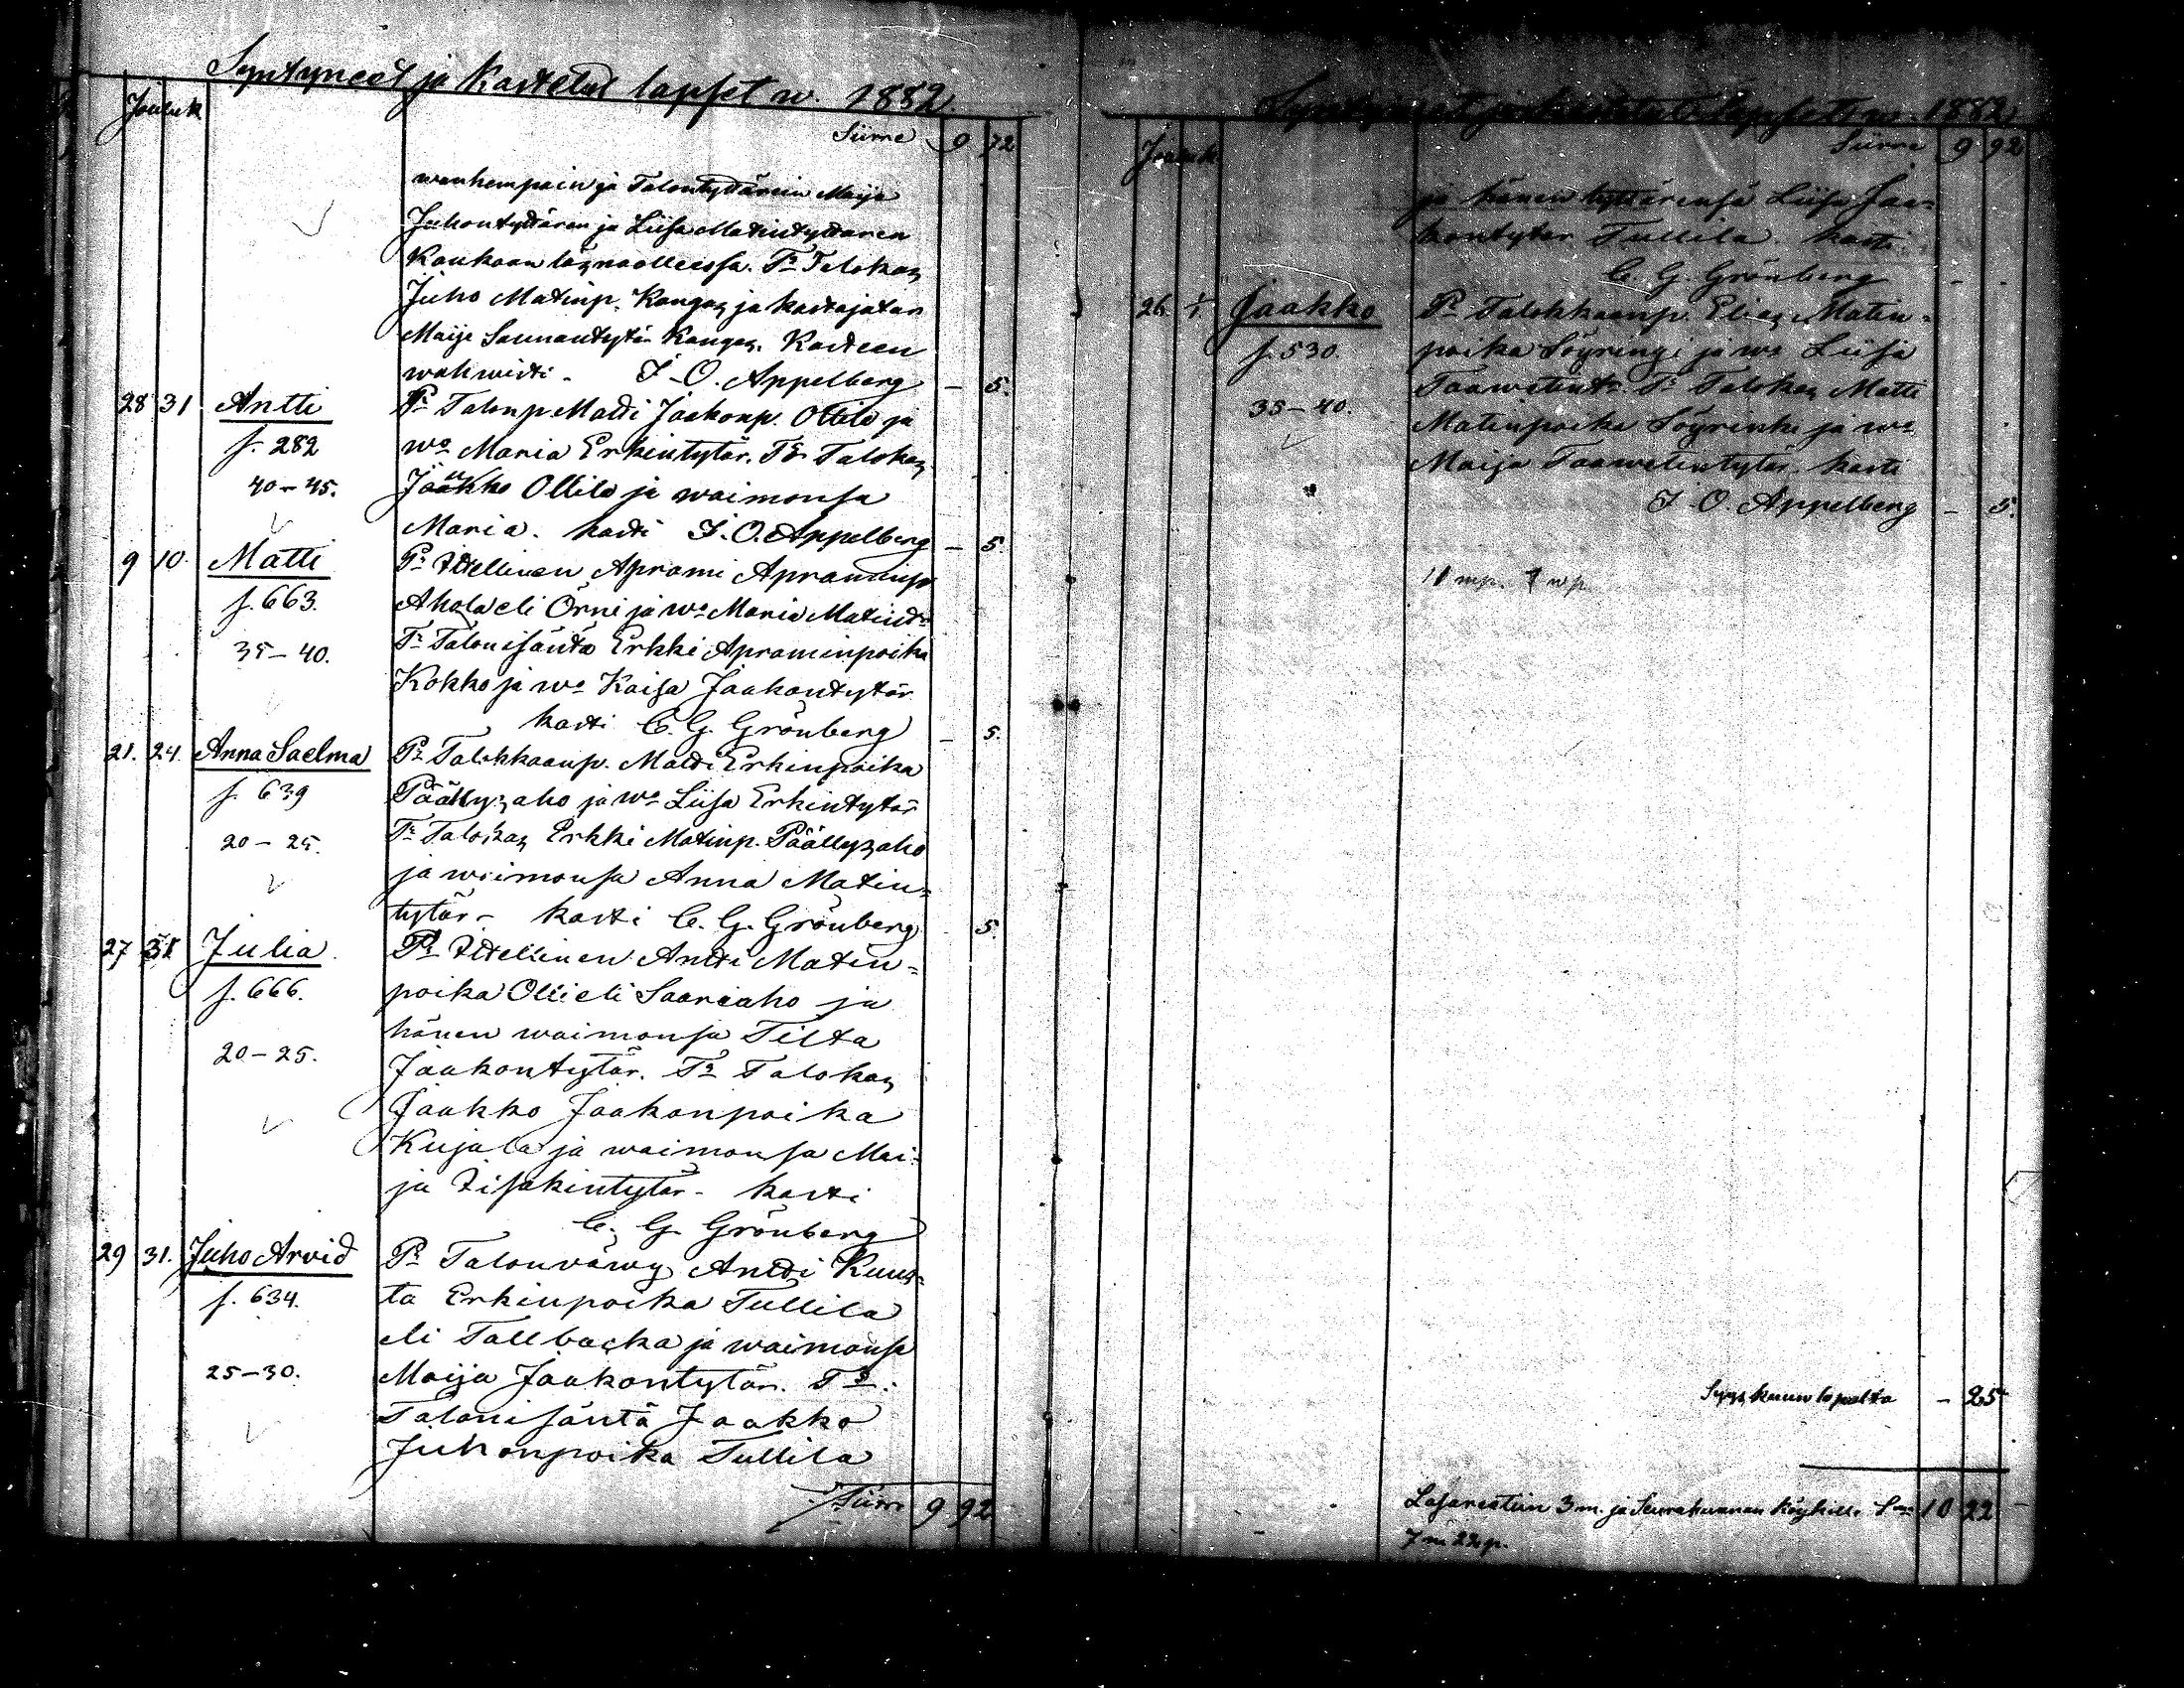 Syntyneet ja Kastetut lapset w. 1882.
Jouluk
Siirre 9 72
wanhempain ja Talontyttärein Maija
Juhontyttären ja Liisa Matintyttaren
Kaukaan läsnäolleessa. Tr Talokas
Juho Matinp. Kangas ja kastajatar
Maija Sannantytär Kangas. Kasteen
wahwisti - I. O. Appelberg - 5.
28 31 Antti Pr Talonp Matti Jaakonp. Ollila ja
f. 282 wo Maria Erkintytär. Tr Talokas
40-45. Jaakko Ollila ja waimonsa
Maria. kasti I. O. Appelberg - 5.
9 10. Matti Pr Itellinen Aprami Apraminp
f. 663. Ahola eli Örni ja wo Maria Matint
35-40. Tr Talonisäntä Erkki Apraminpoika
Kokko ja wo Kaisa Jaakontytär
kasti C. G. Grönberg - 5.
21. 24. Anna Saelma Pr Talokkaanp. Matti Erkinpoika
f. 639 Päällysaho ja wo Liisa Erkintytär
20-25. Tr Talokas Erkki Matinp. Päällysaho
ja waimonsa Anna Matin-
tytär - kasti C. G. Grönberg 5.
27 31 Julia Pr Itellinen Antti Matin-
f. 666. poika Olli eli Saariaho ja
hänen waimonsa Tilta
20-25. Jaakontytär. Tr Talokas
Jaakko Jaakonpoika
Kujala ja waimonsa Mai-
ja Iisakintytär - kasti
C. G. Grönberg
29 31. Juho Arvid Pr Talonväwy Antti Kus-
f. 634. ta Erkinpoika Tullila
eli Tallbacka ja waimonsa
25-30. Maija Jaakontytär. Tr:
Talonisäntä Jaakko
Juhonpoika Tullila
Siirre 9 92
Syntyneet ja kastetut lapset w. 1882
Jouluk.
Siirre 9 92
ja hänen tyttärensä Liisa Jaa-
kontytar Tullila. kasti
C. G. Grönberg - -
26 1/1 Jaakko Pr Talokkaanp. Elias Matin-
f. 530. poika Söyringi ja wo Liisa
Taawetint. Tr Talokas Matti
35-40. Matinpoika Söyrinki ja wo
Maija Taawetintytär. kasti
I. O. Appelberg - 5.
11 mp. 7 wp.
Syyskuun lopulta - 25
Lasarettiin 3 m. ja Seurakunnan köyhille Sma 10 22
7 m 22 p.